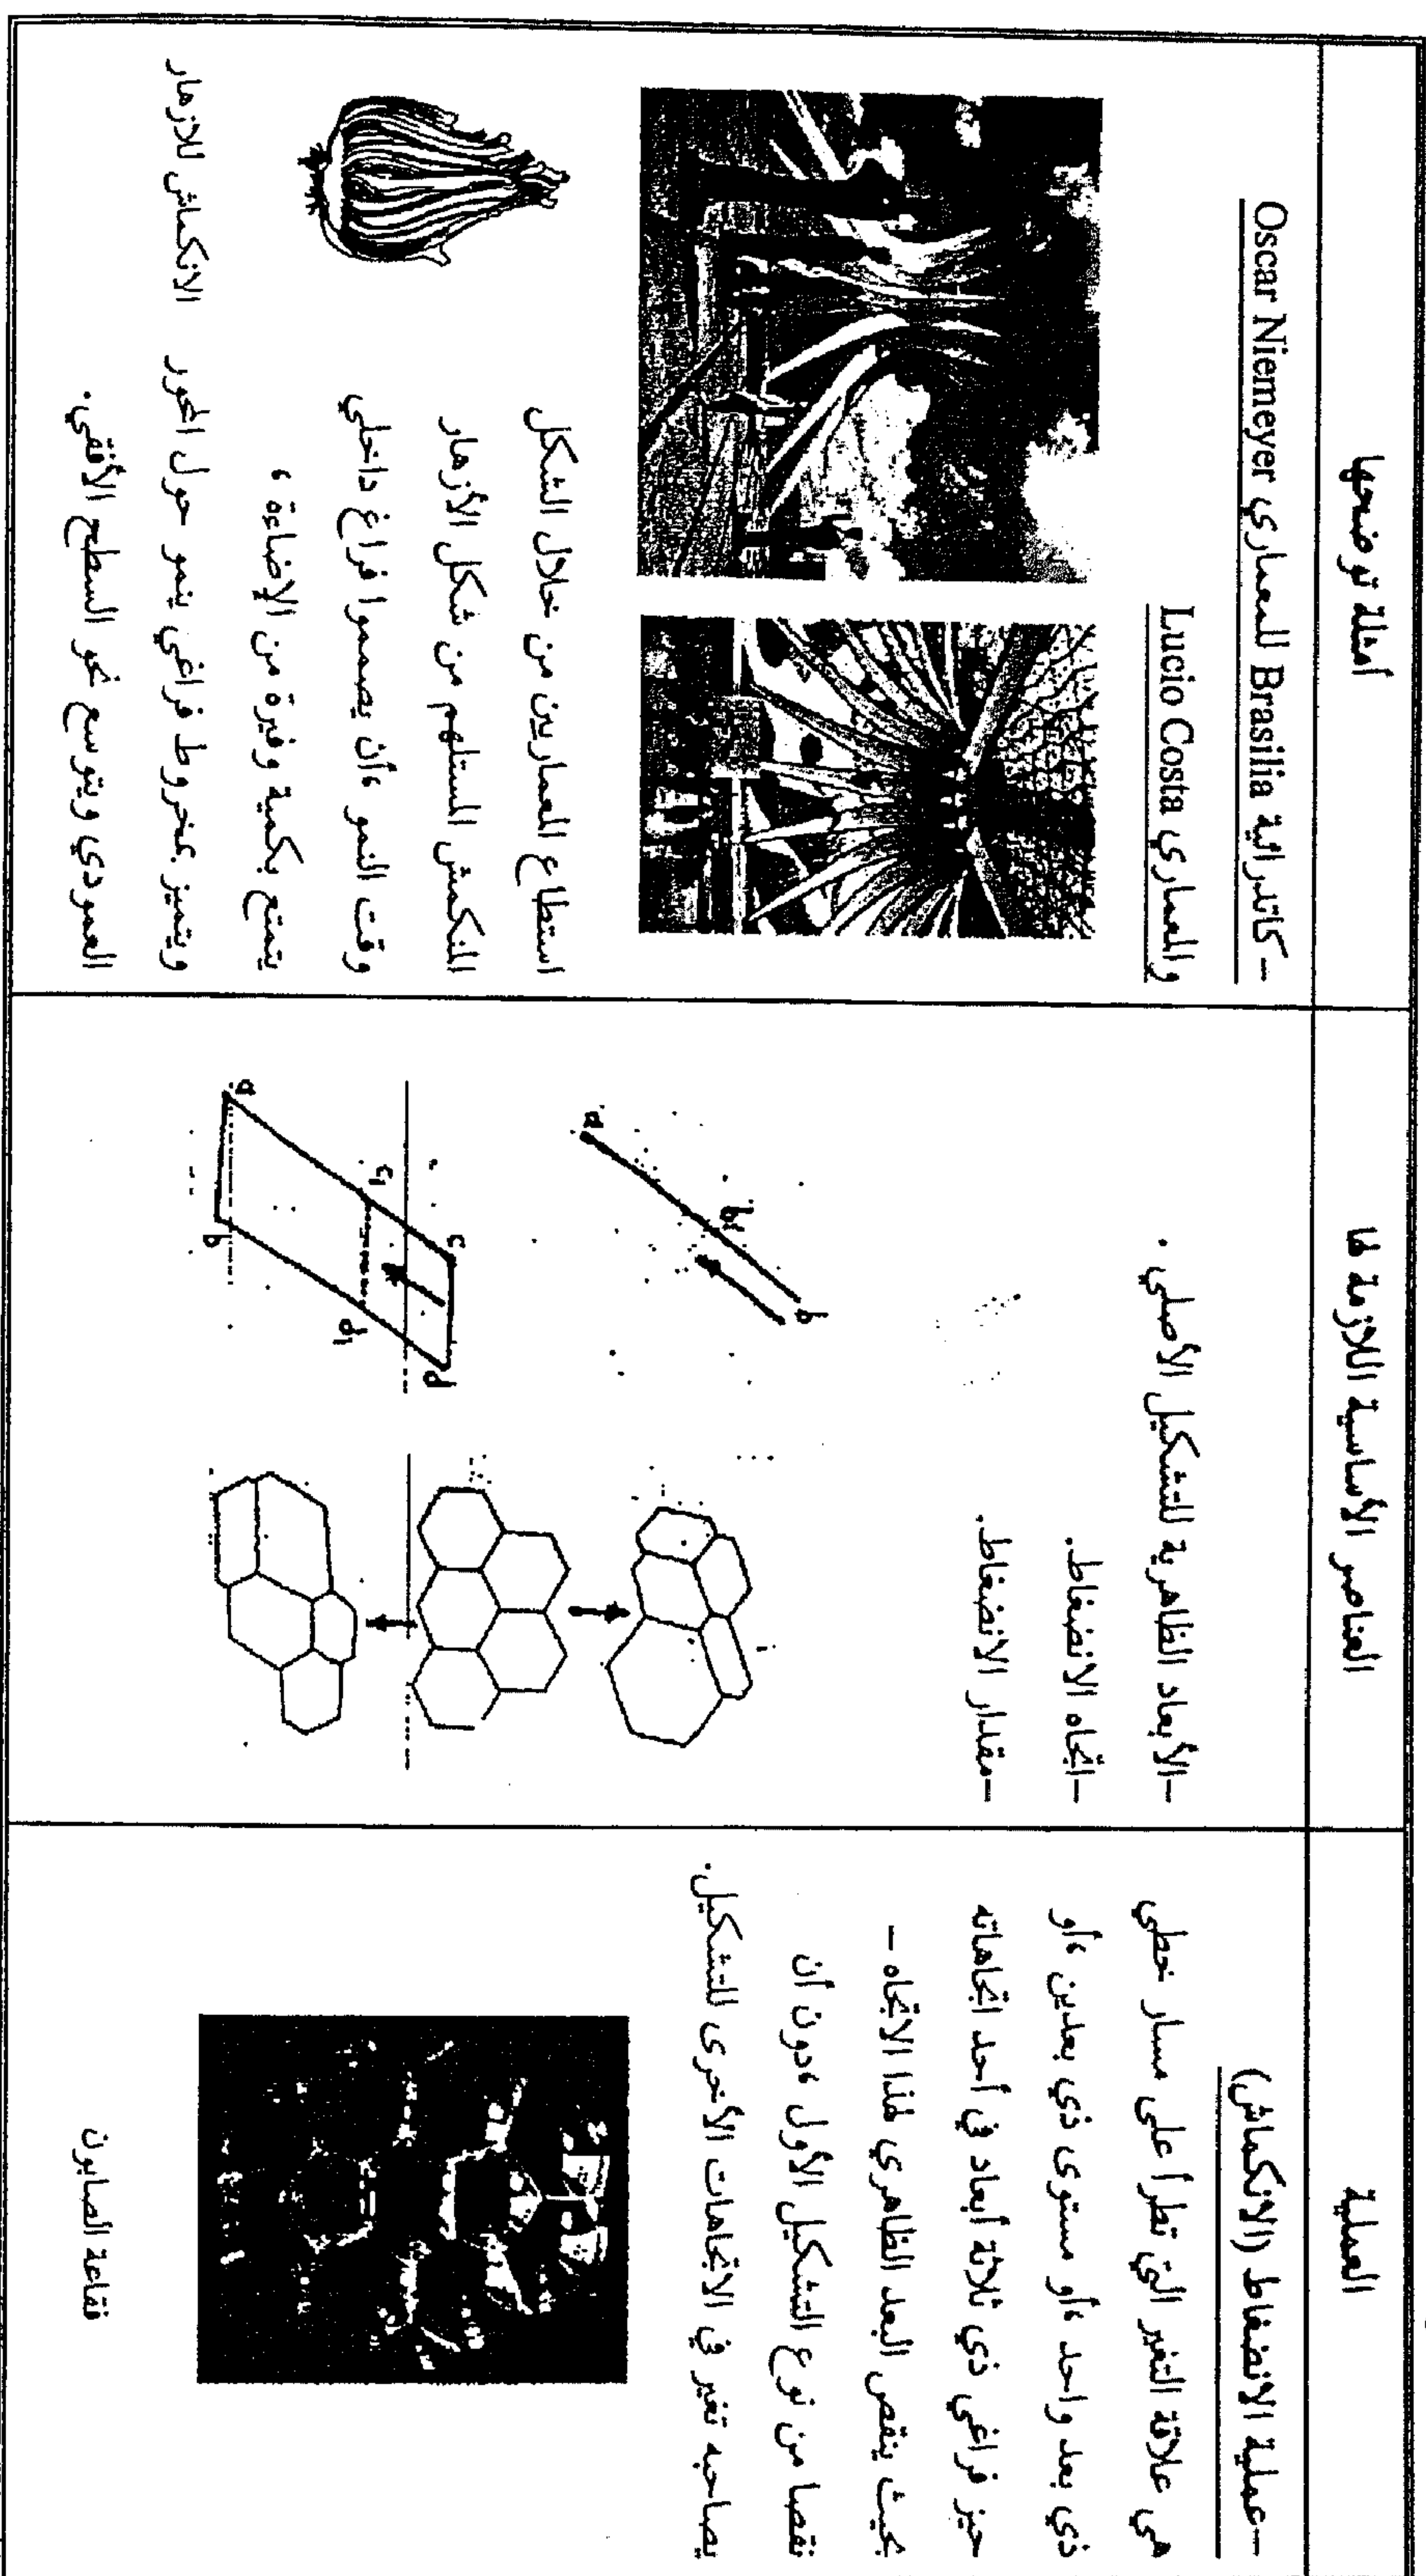 العملية
العناصر الأساسية اللازمة لها
أمثلة توضحها
–عملية الانضغاط (الانكماش)
هي علاقة التغير التي تطرأ على مسار خطي
ذي بعد واحد ،أو مستوى ذي بعدين ،أو
حيز فراغي ذي ثلاثة أبعاد في أحد اتجاهاته
بحيث ينقص البعد الظاهري لهذا الاتجاه –
نقصا من نوع التشكيل الأول ،دون أن
يصاحبه تغير في الاتجاهات الأخرى للتشكيل.
فقاعة الصابون
–الأبعاد الظاهرية للتشكيل الأصلي .
–اتجاه الانضغاط.
–مقدار الانضغاط.
a
b1
b
a
b
c1
d1
c
d
–كاتدرائية Brasilia للمعماري Oscar Niemeyer
والمعماري Lucio Costa
استطاع المعماريين من خلال الشكل
المنكمش المستلهم من شكل الأزهار
وقت النمو ،أن يصمموا فراغ داخلي
يتمتع بكمية وفيرة من الإضاءة ،
ويتميز بمخروط فراغي ينمو حول المحور
العمودي ويتوسع نحو السطح الأفقي.
الانكماش للازهار